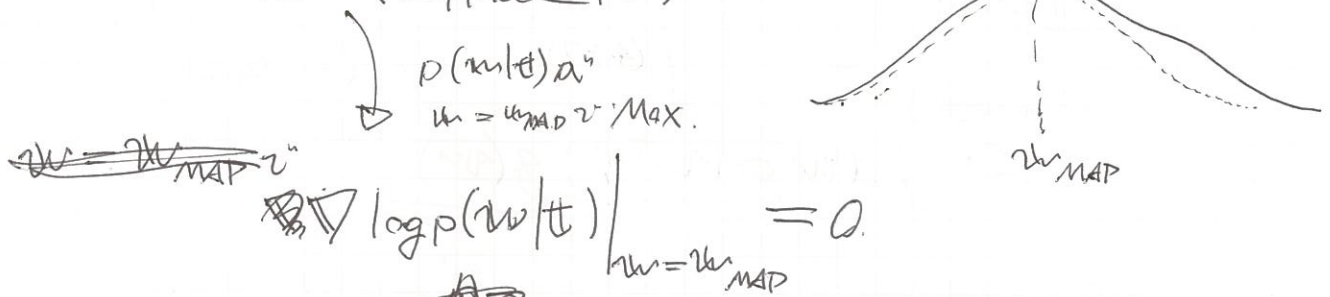 p(w|t) が
w = w_MAP で Max.
w_MAP
w = w_MAP で
∇ log p(w|t) |_{w = w_MAP} = 0.